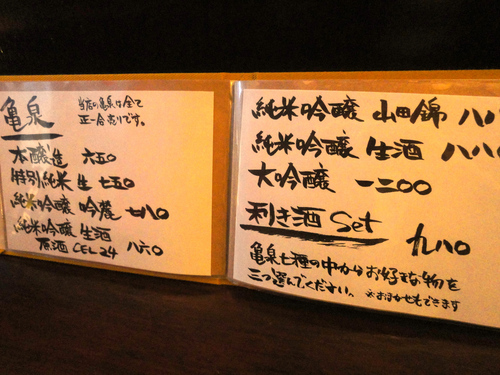 亀泉
当店の亀泉は全て
正一合売りです。
本醸造 六五〇
特別純米 生 七五〇
純米吟醸 吟麓 七八〇
純米吟醸 生酒
原酒 CEL24 八六〇
純米吟醸 山田錦 八八
純米吟醸 生酒 八八〇
大吟醸 一二〇〇
利き酒 Set
九八〇
亀泉七種の中からお好きな物を
三つ選んでください。 ※おまかせもできます